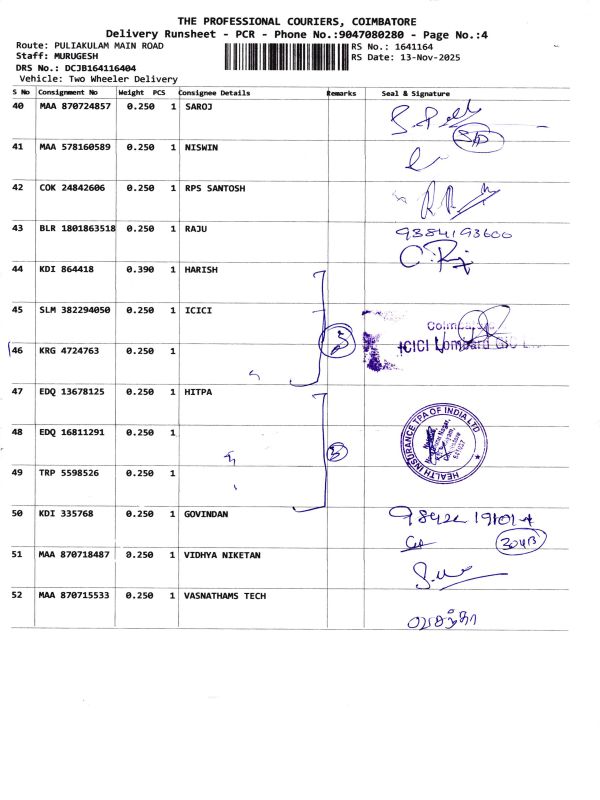 THE PROFESSIONAL COURIERS, COIMBATORE
Delivery Runsheet - PCR - Phone No.:9047080280 - Page No.:4
Route: PULIAKULAM MAIN ROAD RS No.: 1641164
Staff: MURUGESH RS Date: 13-Nov-2025
DRS No.: DCJB164116404
Vehicle: Two Wheeler Delivery
S No Consignment No Weight PCS Consignee Details Remarks Seal & Signature
40 MAA 870724857 0.250 1 SAROJ
41 MAA 578160589 0.250 1 NISWIN
42 COK 24842606 0.250 1 RPS SANTOSH
43 BLR 1801863518 0.250 1 RAJU 9384193600
44 KDI 864418 0.390 1 HARISH
45 SLM 382294050 0.250 1 ICICI
46 KRG 4724763 0.250 1 ICICI Lombard
47 EDQ 13678125 0.250 1 HITPA
48 EDQ 16811291 0.250 1 HEALTH INSURANCE TPA OF INDIA LTD
49 TRP 5598526 0.250 1
50 KDI 335768 0.250 1 GOVINDAN
51 MAA 870718487 0.250 1 VIDHYA NIKETAN
52 MAA 870715533 0.250 1 VASNATHAMS TECH
வசந்தா